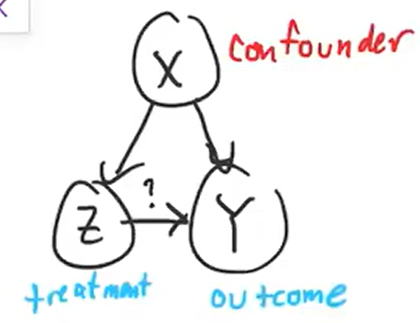 X
confounder
?
Z
Y
treatment
outcome